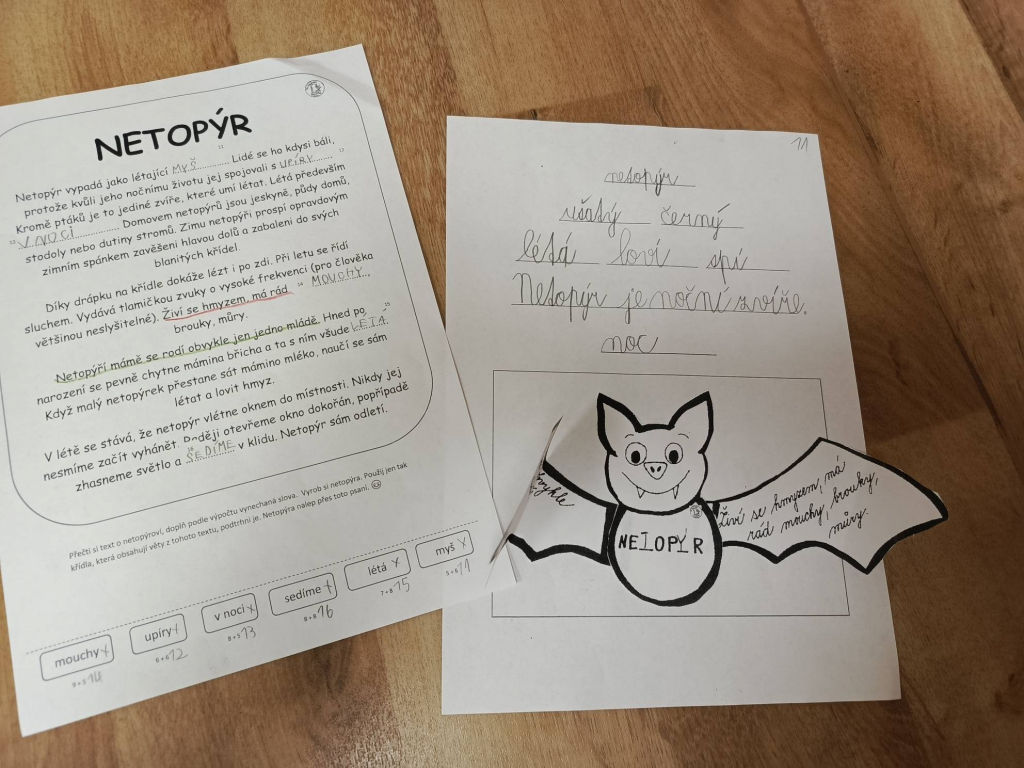 NETOPÝR
Netopýr vypadá jako létající MYŠ. Lidé se ho kdysi báli,
protože kvůli jeho nočnímu životu jej spojovali s UPÍRY.
Kromě ptáků je to jediné zvíře, které umí létat. Létá především
13 V NOCI. Domovem netopýrů jsou jeskyně, půdy domů,
stodoly nebo dutiny stromů. Zimu netopýři prospí opravdovým
zimním spánkem zavěšeni hlavou dolů a zabaleni do svých
blanitých křídel.
Díky drápku na křídle dokáže lézt i po zdi. Při letu se řídí
sluchem. Vydává tlamičkou zvuky o vysoké frekvenci (pro člověka
většinou neslyšitelné). Živí se hmyzem, má rád 14 MOUCHY,
brouky, můry.
Netopýří mámě se rodí obvykle jen jedno mládě. Hned po 15
narození se pevně chytne mámina břicha a ta s ním všude LÉTÁ.
Když malý netopýrek přestane sát mámino mléko, naučí se sám
létat a lovit hmyz.
V létě se stává, že netopýr vlétne oknem do místnosti. Nikdy jej
nesmíme začít vyhánět. Raději otevřeme okno dokořán, popřípadě
zhasneme světlo a 16 SEDÍME v klidu. Netopýr sám odletí.
Přečti si text o netopýrovi, doplň podle výpočtu vynechaná slova. Vyrob si netopýra. Použij jen tak
křídla, která obsahují věty z tohoto textu, podtrhni je. Netopýra nalep přes toto psaní.
mouchy upíry v noci sedíme létá myš
9+5 14 6+6 12 8+5 13 8+8 16 7+8 15 5+6 11
11
netopýr
ušatý černý
létá loví spí
Netopýr je noční zvíře.
noc
Živí se hmyzem, má
rád mouchy, brouky,
můry.
NETOPÝR